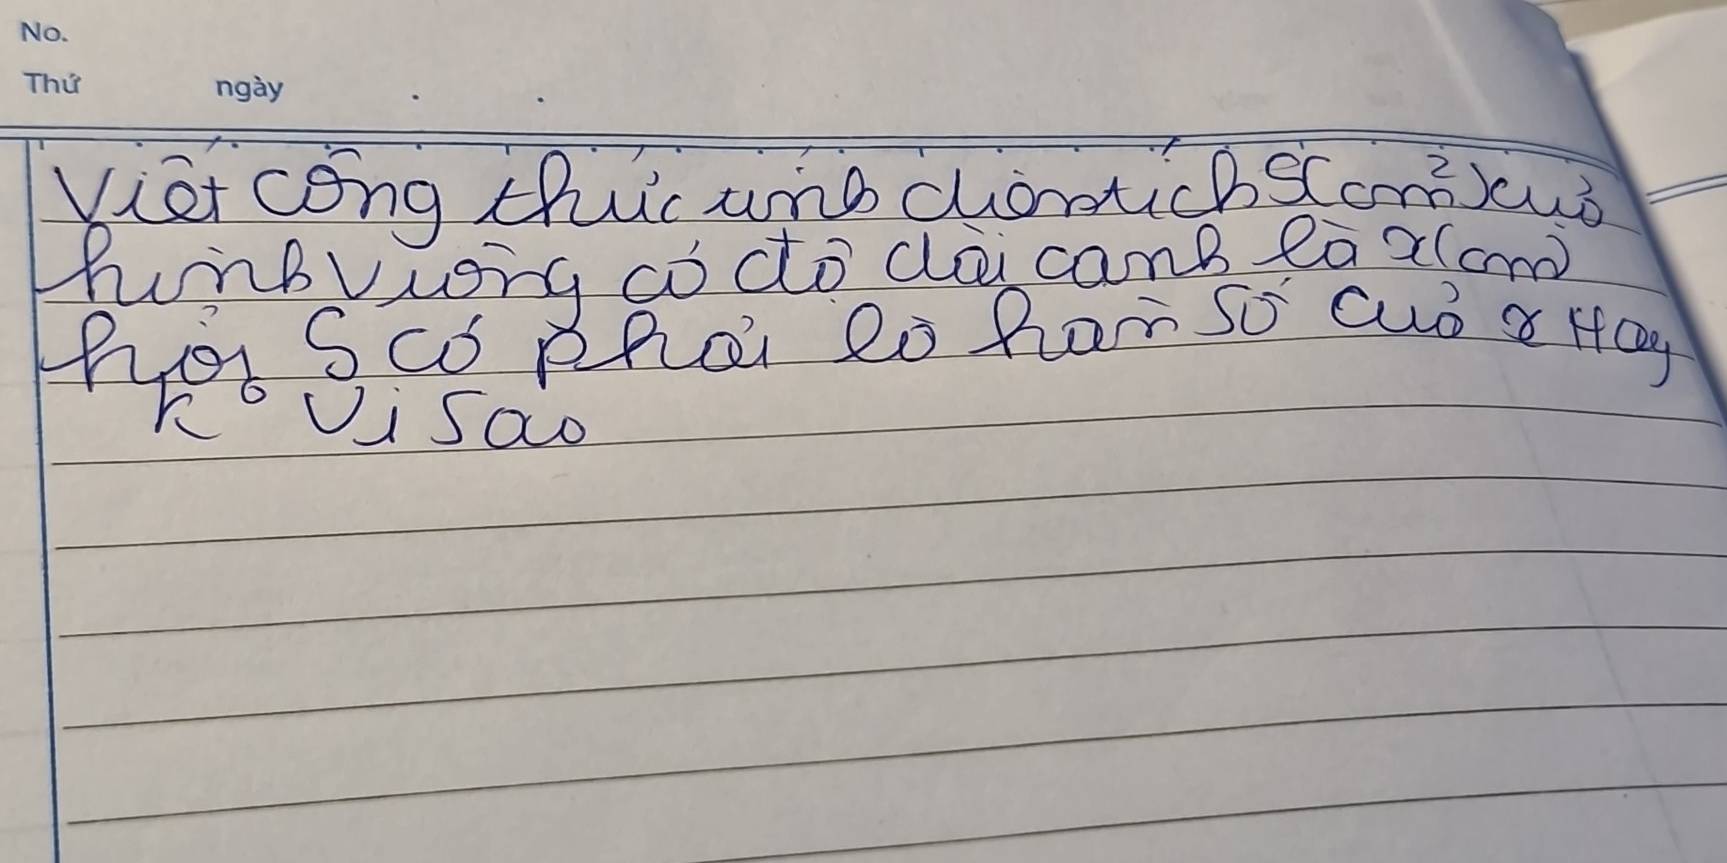 No.
Thứ ngày . .
Viết công thức tính diện tích S(cm²) của
hình vuông có độ dài cạnh là x(cm)
hỏi S có phải là hàm số của x Hay
k° Vì Sao